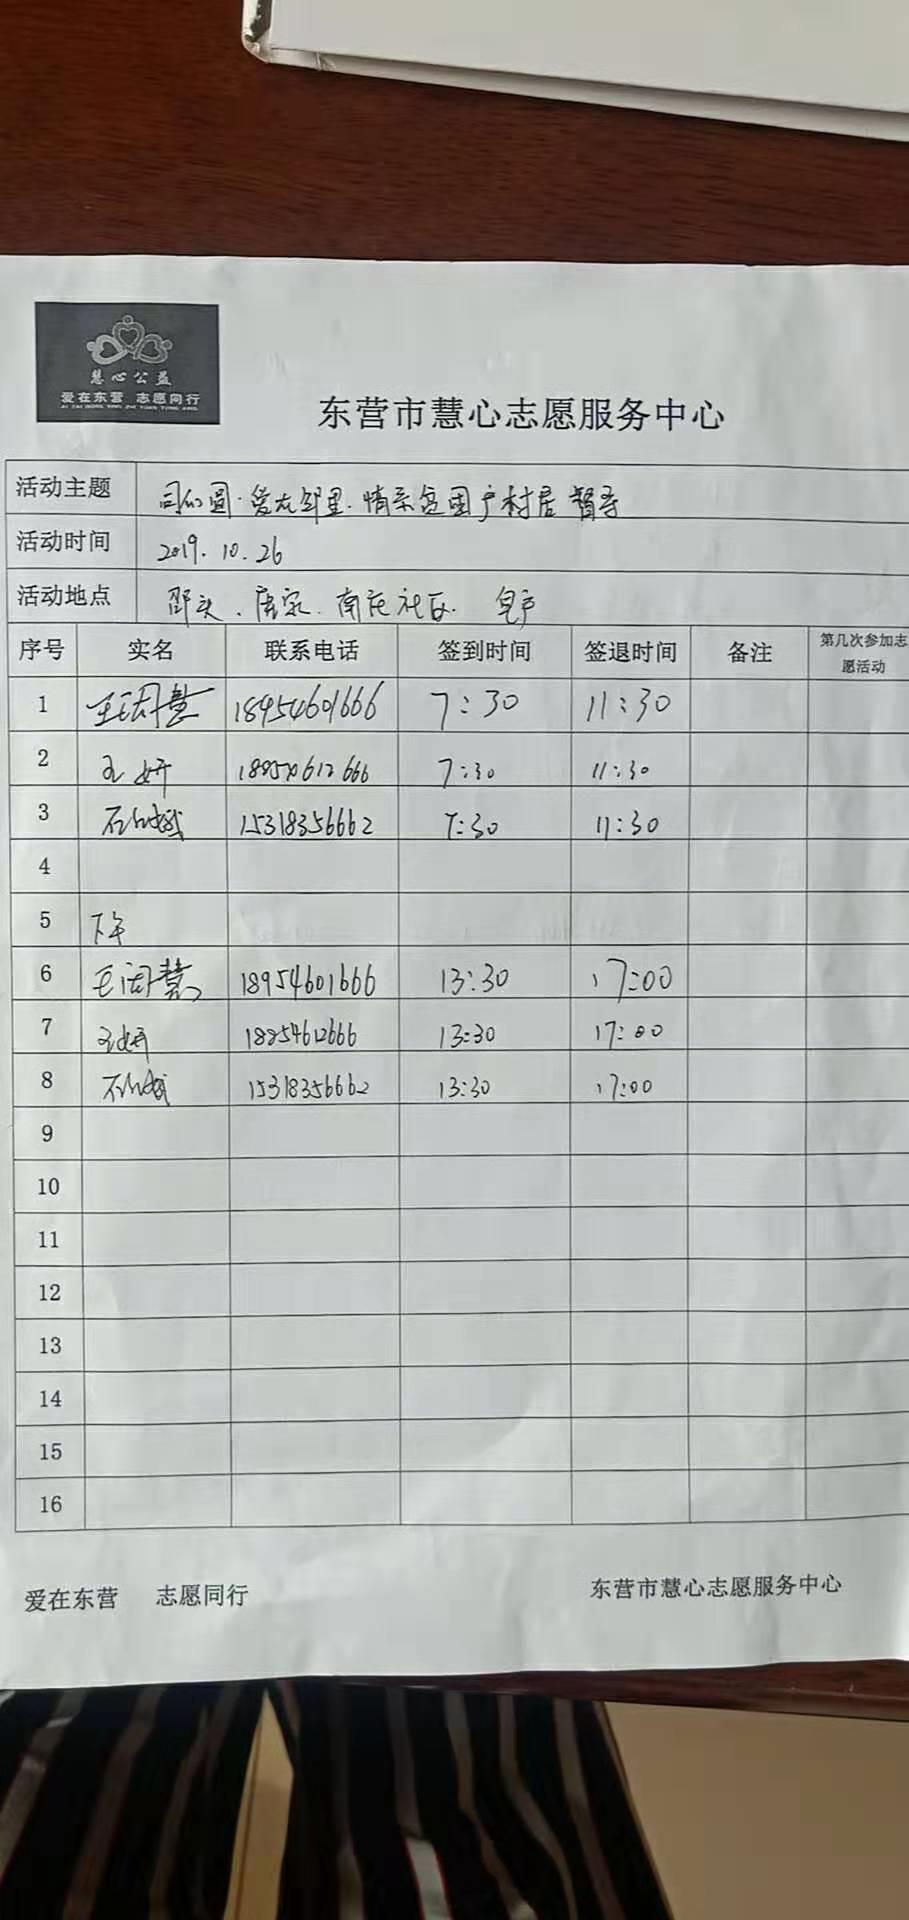 慧心公益
爱在东营 志愿同行
AI ZAI DONG YING ZHI YUAN TONG XING
东营市慧心志愿服务中心
活动主题 同心圆·爱在邻里·情系贫困户村居 督导
活动时间 2019.10.26
活动地点 邵头. 唐家. 南花社区.
序号 实名 联系电话 签到时间 签退时间 备注 第几次参加志
愿活动
1 王国慧 18954601666 7:30 11:30
2 王妍 7:30 11:30
3 15318356662 7:30 11:30
4
5 下午
6 王国慧 18954601666 13:30 17:00
7 王妍 18954612666 13:30 17:00
8 15318356662 13:30 17:00
9
10
11
12
13
14
15
16
爱在东营 志愿同行 东营市慧心志愿服务中心